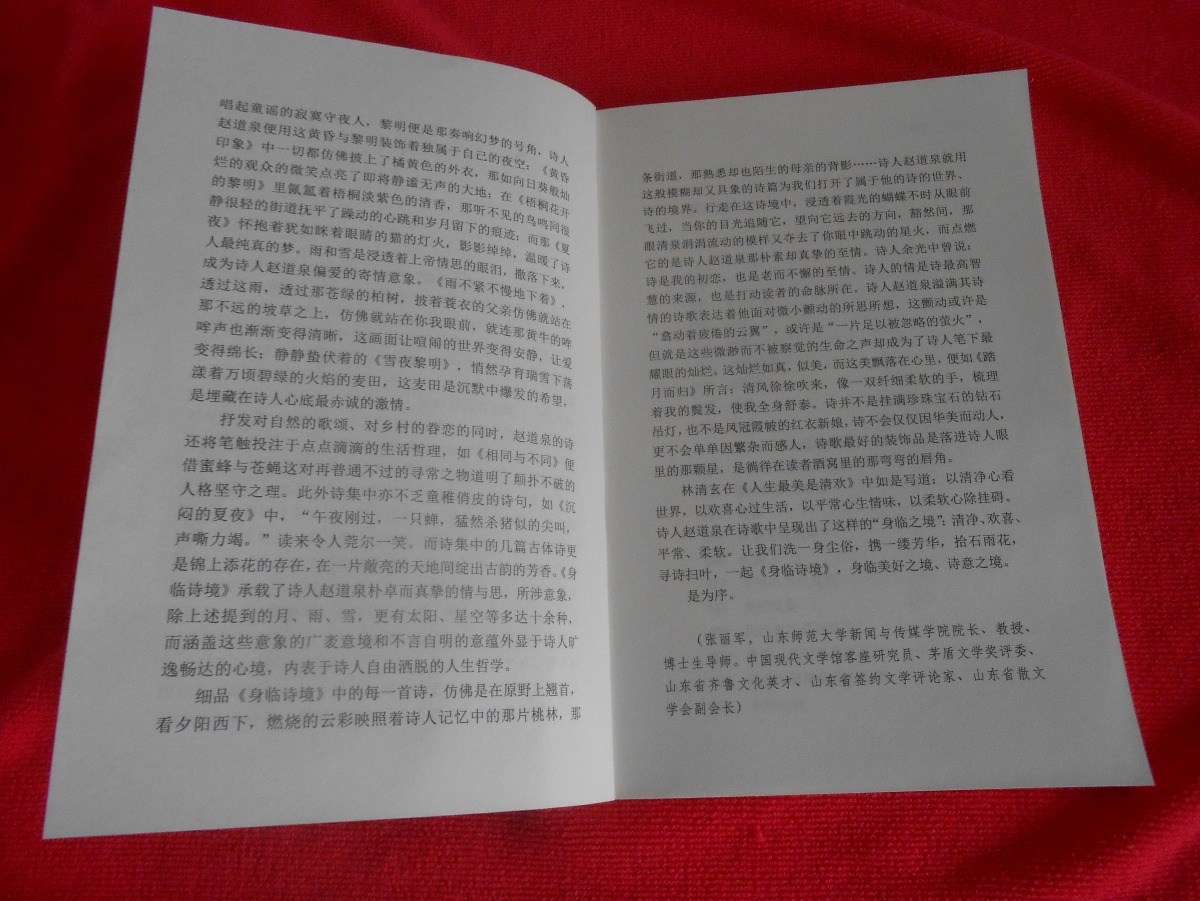 唱起童谣的寂寞守夜人，黎明便是那奏响幻梦的号角，诗人
赵道泉便用这黄昏与黎明装饰着独属于自己的夜空：《黄昏
印象》中一切都仿佛披上了橘黄色的外衣，那如向日葵般灿
烂的观众的微笑点亮了即将静谧无声的大地；在《梧桐花开
的黎明》里氤氲着梧桐淡紫色的清香，那听不见的鸟鸣同很
静很轻的街道抚平了躁动的心跳和岁月留下的痕迹；而那《夏
夜》怀抱着犹如眯着眼睛的猫的灯火，影影绰绰，温暖了诗
人最纯真的梦。雨和雪是浸透着上帝情思的眼泪，撒落下来，
成为诗人赵道泉偏爱的寄情意象。《雨不紧不慢地下着》，
透过这雨，透过那苍绿的柏树，披着蓑衣的父亲仿佛就站在
那不远的坡草之上，仿佛就站在你我眼前，就连那黄牛的哞
哞声也渐渐变得清晰，这画面让喧闹的世界变得安静，让爱
变得绵长；静静蛰伏着的《雪夜黎明》，悄然孕育瑞雪下荡
漾着万顷碧绿的火焰的麦田，这麦田是沉默中爆发的希望，
是埋藏在诗人心底最赤诚的激情。
抒发对自然的歌颂、对乡村的眷恋的同时，赵道泉的诗
还将笔触投注于点点滴滴的生活哲理，如《相同与不同》便
借蜜蜂与苍蝇这对再普通不过的寻常之物道明了颠扑不破的
人格坚守之理。此外诗集中亦不乏童稚俏皮的诗句，如《沉
闷的夏夜》中，“午夜刚过，一只蝉，猛然杀猪似的尖叫，
声嘶力竭。”读来令人莞尔一笑。而诗集中的几篇古体诗更
是锦上添花的存在，在一片敞亮的天地间绽出古韵的芳香。《身
临诗境》承载了诗人赵道泉朴卓而真挚的情与思，所涉意象，
除上述提到的月、雨、雪，更有太阳、星空等多达十余种，
而涵盖这些意象的广袤意境和不言自明的意蕴外显于诗人旷
逸畅达的心境，内表于诗人自由洒脱的人生哲学。
细品《身临诗境》中的每一首诗，仿佛是在原野上翘首，
看夕阳西下，燃烧的云彩映照着诗人记忆中的那片桃林，那
条街道，那熟悉却也陌生的母亲的背影……诗人赵道泉就用
这般模糊却又具象的诗篇为我们打开了属于他的诗的世界、
诗的境界。行走在这诗境中，浸透着霞光的蝴蝶不时从眼前
飞过，当你的目光追随它，望向它远去的方向，豁然间，那
眼清泉涓涓流动的模样又夺去了你眼中跳动的星火，而点燃
它的是诗人赵道泉那朴素却真挚的至情。诗人余光中曾说：
诗是我的初恋，也是老而不懈的至情。诗人的情是诗最高智
慧的来源，也是打动读者的命脉所在。诗人赵道泉溢满其诗
情的诗歌表达着他面对微小颤动的所思所想，这颤动或许是
“翕动着疲倦的云翼”，或许是“一片足以被忽略的萤火”，
但就是这些微渺而不被察觉的生命之声却成为了诗人笔下最
耀眼的灿烂。这灿烂如真，似美，而这美飘落在心里，便如《踏
月而归》所言：清风徐徐吹来，像一双纤细柔软的手，梳理
着我的鬓发，使我全身舒泰。诗并不是挂满珍珠宝石的钻石
吊灯，也不是凤冠霞帔的红衣新娘，诗不会仅仅因华美而动人，
更不会单单因繁杂而感人，诗歌最好的装饰品是落进诗人眼
里的那颗星，是徜徉在读者酒窝里的那弯弯的唇角。
林清玄在《人生最美是清欢》中如是写道：以清净心看
世界，以欢喜心过生活，以平常心生情味，以柔软心除挂碍。
诗人赵道泉在诗歌中呈现出了这样的“身临之境”：清净、欢喜、
平常、柔软。让我们洗一身尘俗，携一缕芳华，拾石雨花，
寻诗扫叶，一起《身临诗境》，身临美好之境、诗意之境。
是为序。
（张丽军，山东师范大学新闻与传媒学院院长、教授、
博士生导师。中国现代文学馆客座研究员、茅盾文学奖评委、
山东省齐鲁文化英才、山东省签约文学评论家、山东省散文
学会副会长）